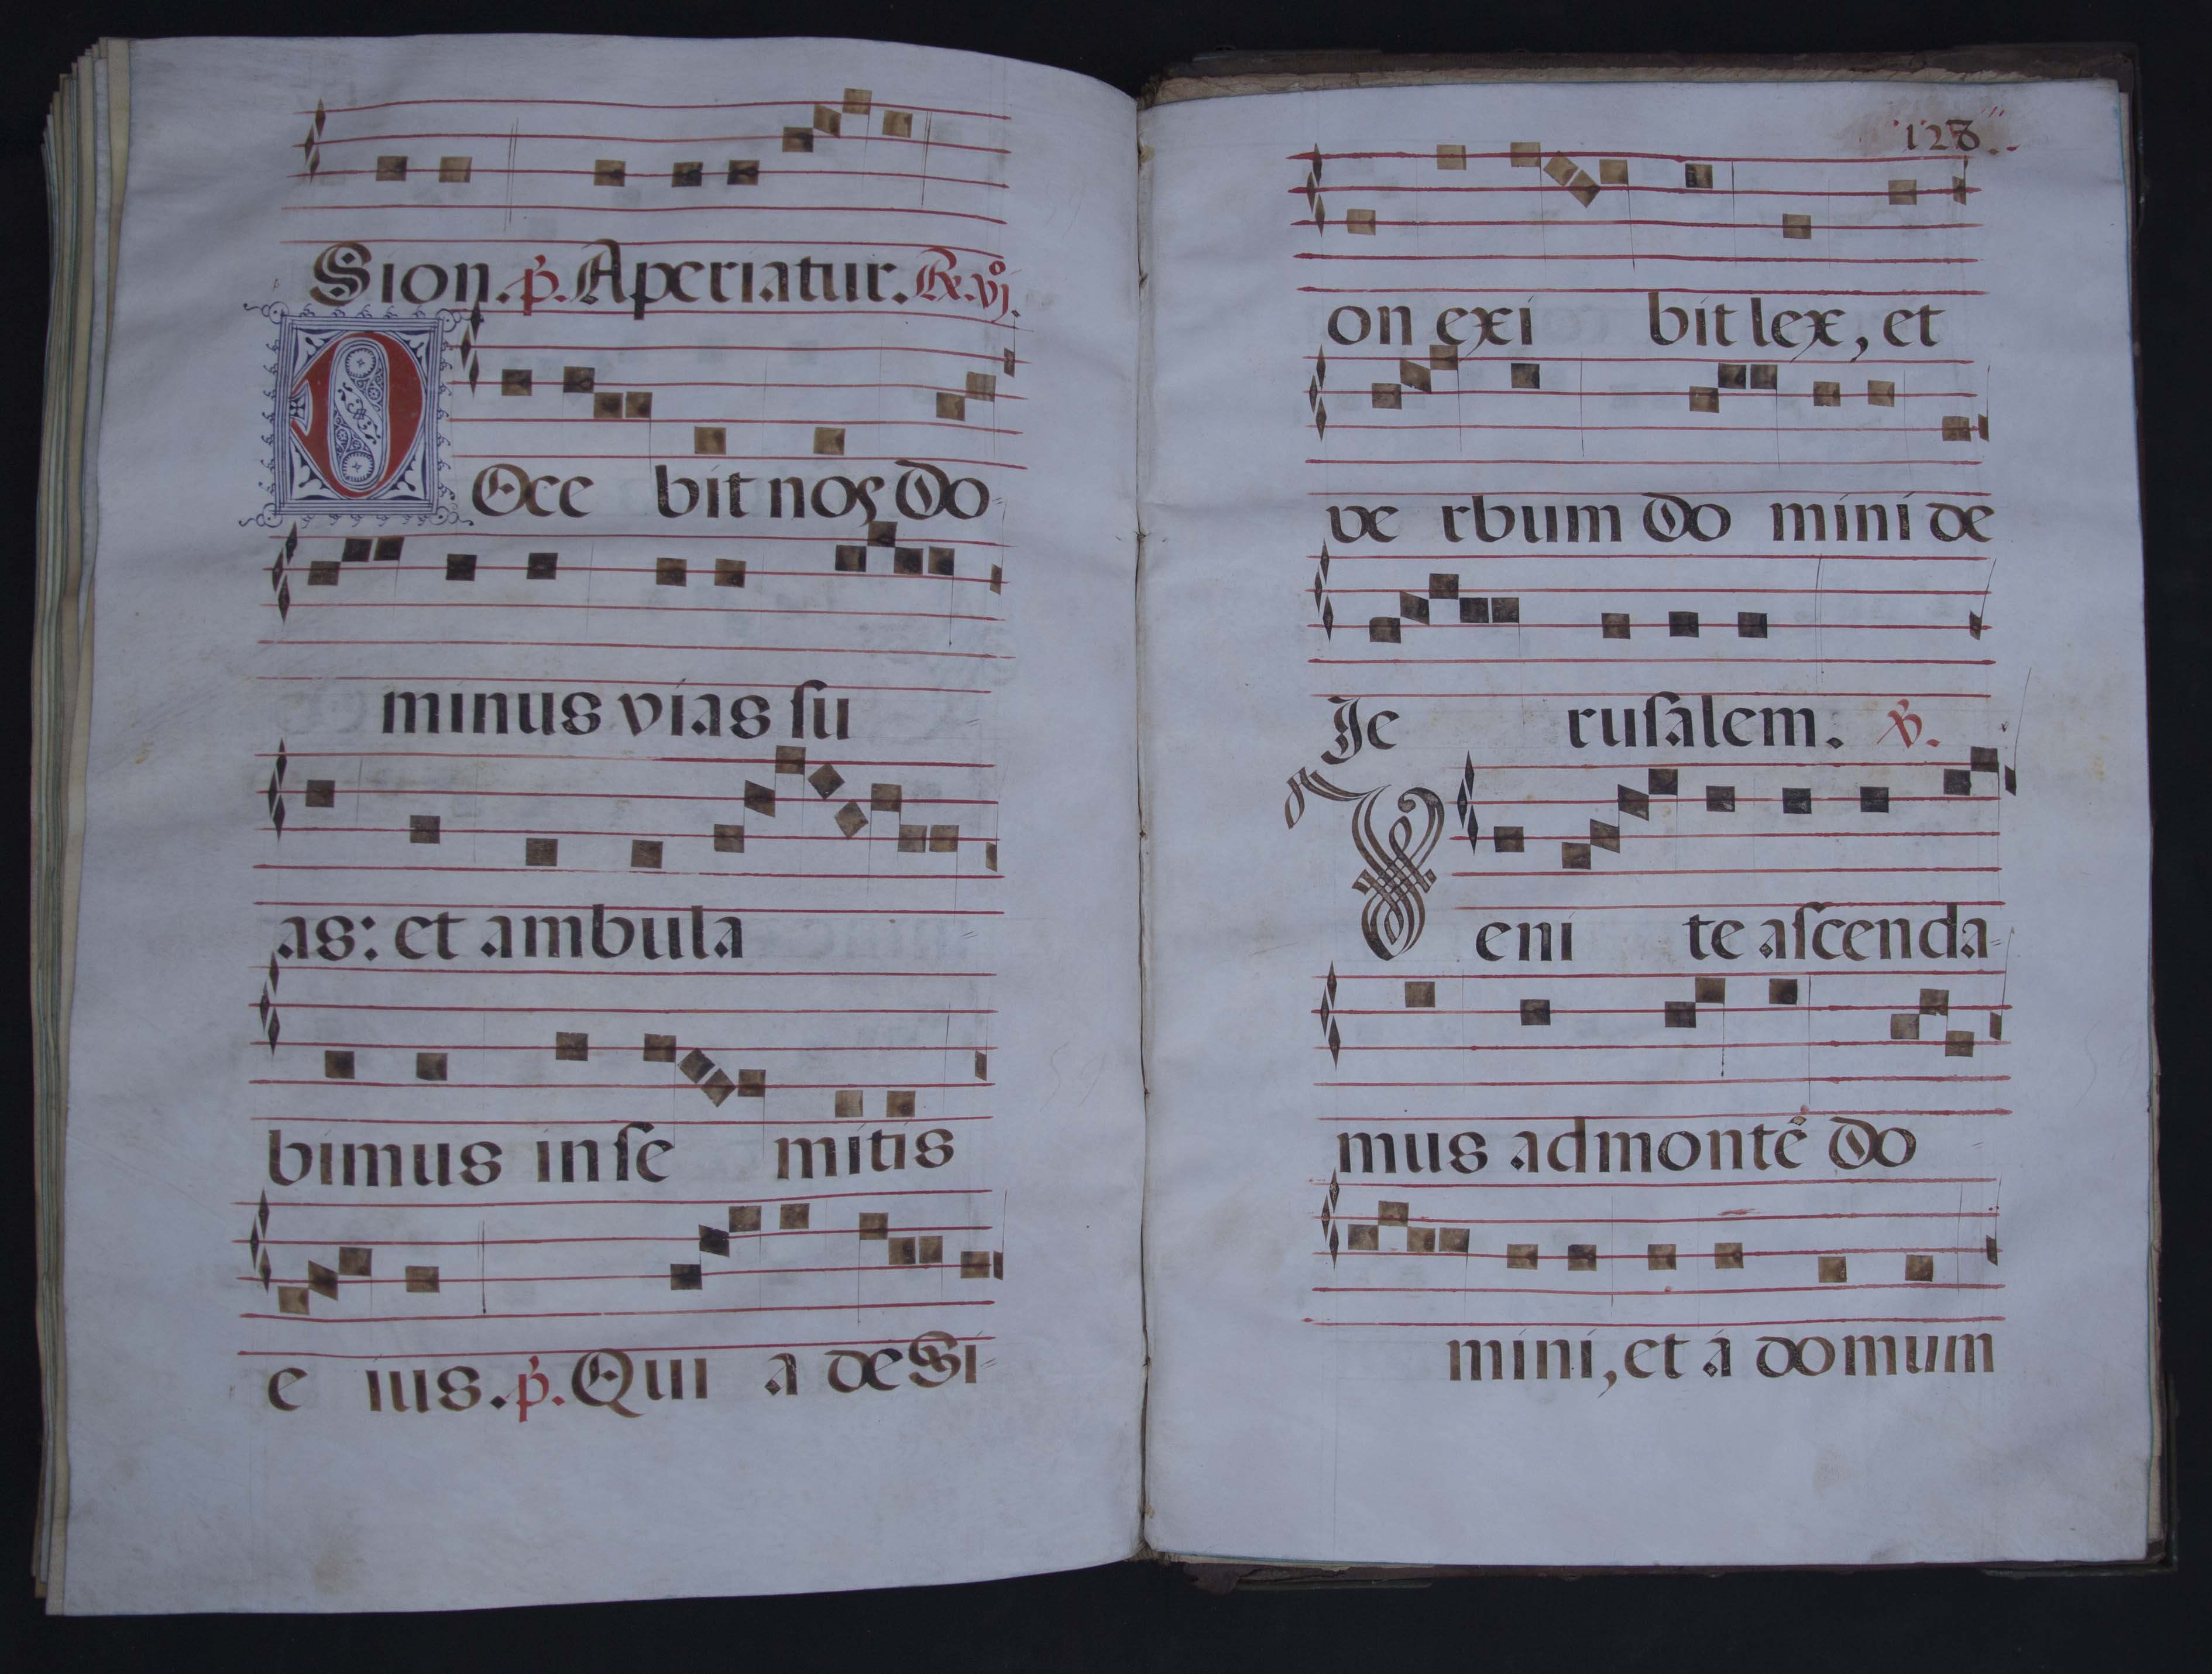 Sion. p̃. Aperiatur. R. vjº.
DOce bit nos Do-
minus vias ſu
as: et ambula
bimus in ſe mitis
e ius. p̃. Qui a de Si-
128.
on exi bit lex, et
ve rbum Do mini de
Je ruſalem. V.
Veni te aſcenda-
mus ad montẽ Do
mini, et á domum